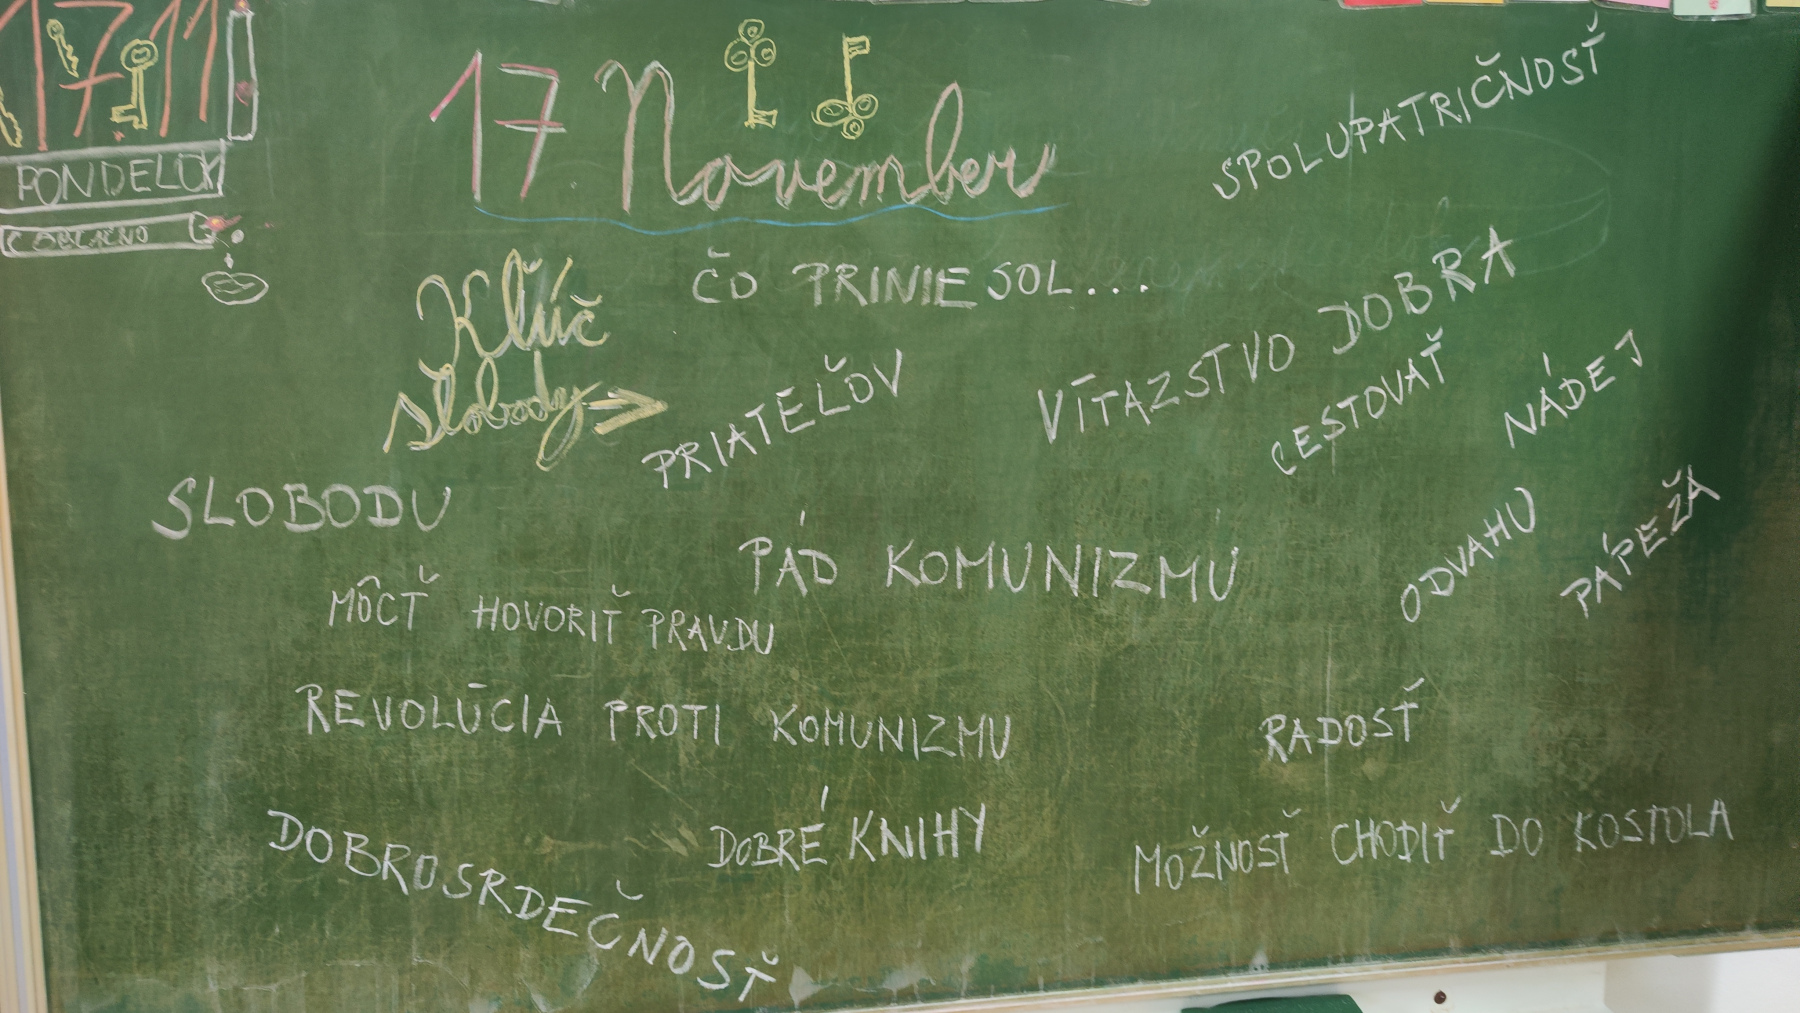 17 11
PONDELOK
OBLAČNO
17 November
ČO PRINIESOL...
Kľúč
slobody
SPOLUPATRIČNOSŤ
PRIATEĽOV
VÍTAZSTVO DOBRA
CESTOVAŤ
NÁDEJ
SLOBODU
PÁD KOMUNIZMU
ODVAHU
PÁPEŽA
MÔCŤ HOVORIŤ PRAVDU
REVOLÚCIA PROTI KOMUNIZMU
RADOSŤ
DOBROSRDEČNOSŤ
DOBRÉ KNIHY
MOŽNOSŤ CHODIŤ DO KOSTOLA